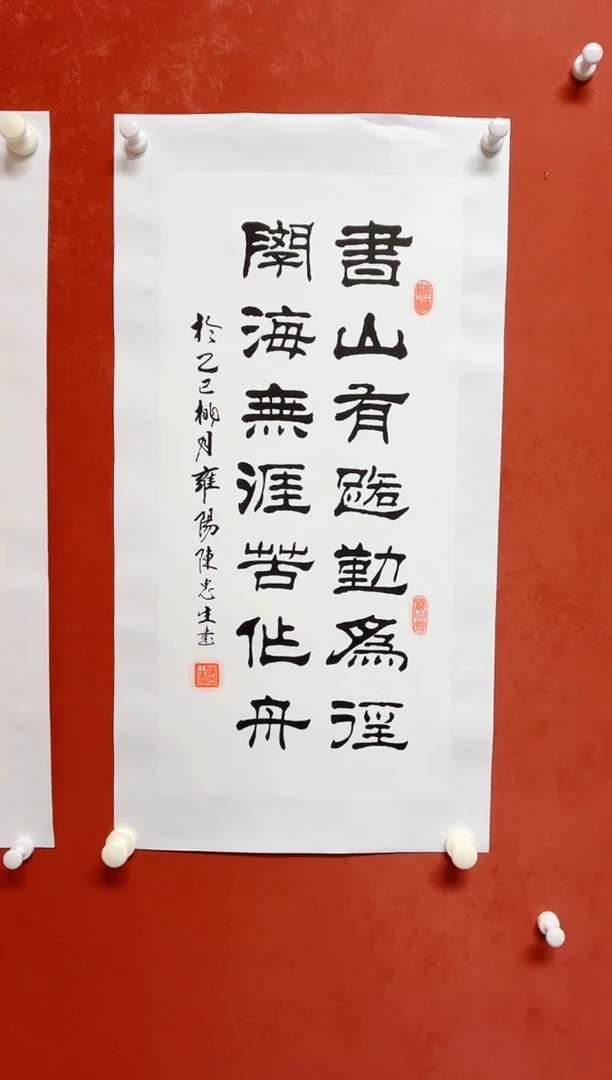 書山有路勤為徑
學海無涯苦作舟
於乙巳桃月雍陽陳忠生書